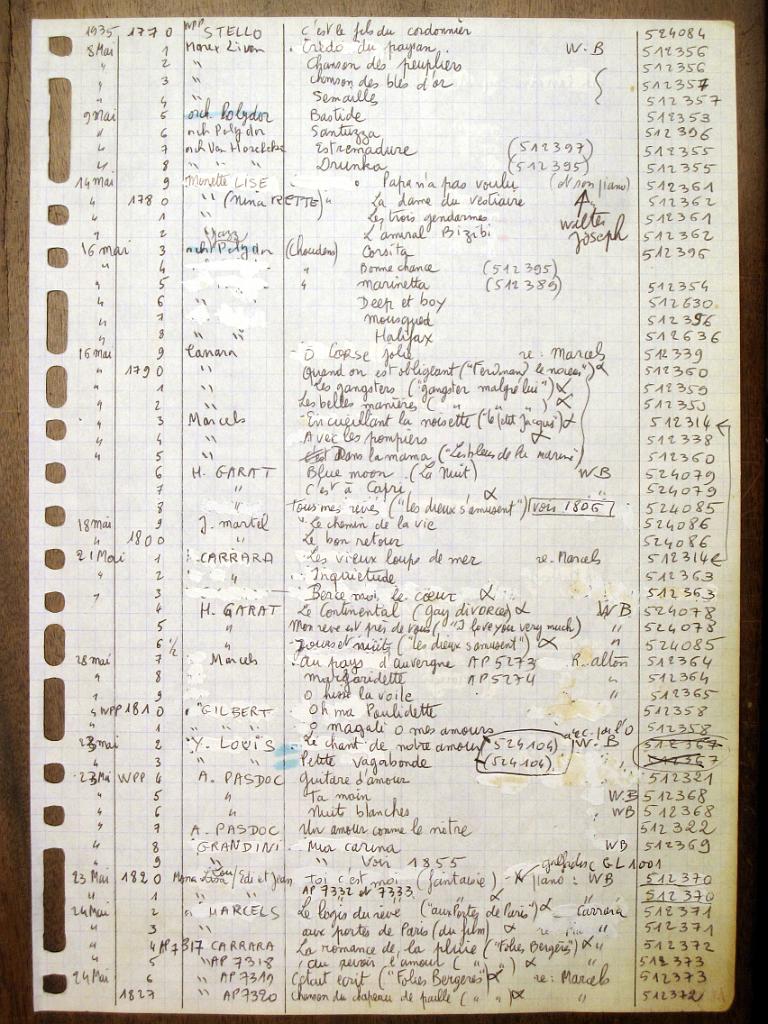 1935 1770 WPP STELLO c'est le fils du cordonnier 524084
8 Mai 1 Credo du paysan W.B 512356
" 2 " Chanson des peupliers 512356
" 3 " Chanson des blés d'or 512357
" 4 " Semailles 512357
9 Mai 5 orch. Polydor Bastide 512353
" 6 orch Polydor Santuzza 512396
" 7 Estremadure (512397) 512355
" 8 " " " Drunka (512395) 512355
14 Mai 9 Monette LISE Papa n'a pas voulu (et son piano) 512361
" 1780 " La dame du vestiaire 512362
" 1 " Les trois gendarmes Walter Joseph 512361
" 2 " L'amiral Bizibi 512362
16 mai 3 Jazz orch Polydor (Choudens) Corsita 512396
" 4 " Bonne chance (512395)
" 5 " marinetta (512389) 512354
" 6 Deep et boy 512630
" 7 512396
" 8 " " Halifax 512636
16 mai 9 Canara O CORSE jolie re: Marcels 512339
" 1790 " Quand on est obligeant 512360
" 1 " Les gangsters ("gangster malgré lui") 512359
" 2 " Les belles manières ( " " " ) 512359
" 3 Marcels En cueillant la noisette 512314
" 4 " Avec les pompiers 512338
" 5 " Dans la mama 512360
" 6 H. GARAT Blue moon (La Nuit) W.B 524079
" 7 " C'est à Capri " 524079
8 tous mes rêves ("les dieux s'amusent") voir 1806 524085
18 mai 9 J. martel Le chemin de la vie 524086
" 1800 Le bon retour 524086
21 Mai 1 CARRARA Les vieux loups de mer re. Marcels 512314
" 2 " Inquietude 512363
" 3 Berce moi le cœur 512363
4 H. GARAT Le Continental (gay divorcee) W B 524078
5 " Mon reve est près de vous ("I love you very much) " 524078
6 1/2 " Jours et nuits ("les dieux s'amusent") " 524085
28 mai 7 Marcels au pays d'auvergne AP 5273 R. alton 512364
" 8 " margaridette AP 5274 " 512364
" 9 O hisse la voile " 512365
" WPP 1810 "GILBERT Oh ma Poulidette 512358
" 1 O magali O mes amours 512358
23 mai 2 Y. LOUIS Le chant de notre amour (524104) W. B 512367
" 3 " " Petite vagabonde (524104) 512367
23 Mai WPP 4 A. PASDOC guitare d'amour 512321
" 5 " Ta main W.B 512368
" 6 " Nuits blanches WB 512368
" 7 A. PASDOC Un amour comme le nôtre 512322
" 8 GRANDINI Mia carina WB 512369
" 9 " Voir 1855 GL 1001
23 Mai 1820 Toi c'est moi (fantaisie) piano: WB 512370
" 1 " " AP 7332 et 7333 " 512370
24 Mai 2 MARCELS Le logis du rêve ("aux Portes de Paris") Carrara 512371
" 3 " aux portes de Paris (du film) re " 512371
" 4 AP 7317 CARRARA La romance de la pluie ("Folies Bergères") " 512372
" 5 " AP 7318 ( " " ) " 512373
24 Mai 6 " AP 7319 C'était écrit ("Folies Bergeres") re: Marcels 512373
1827 " AP 7320 Chanson du chapeau de paille ( " " ) " 512372